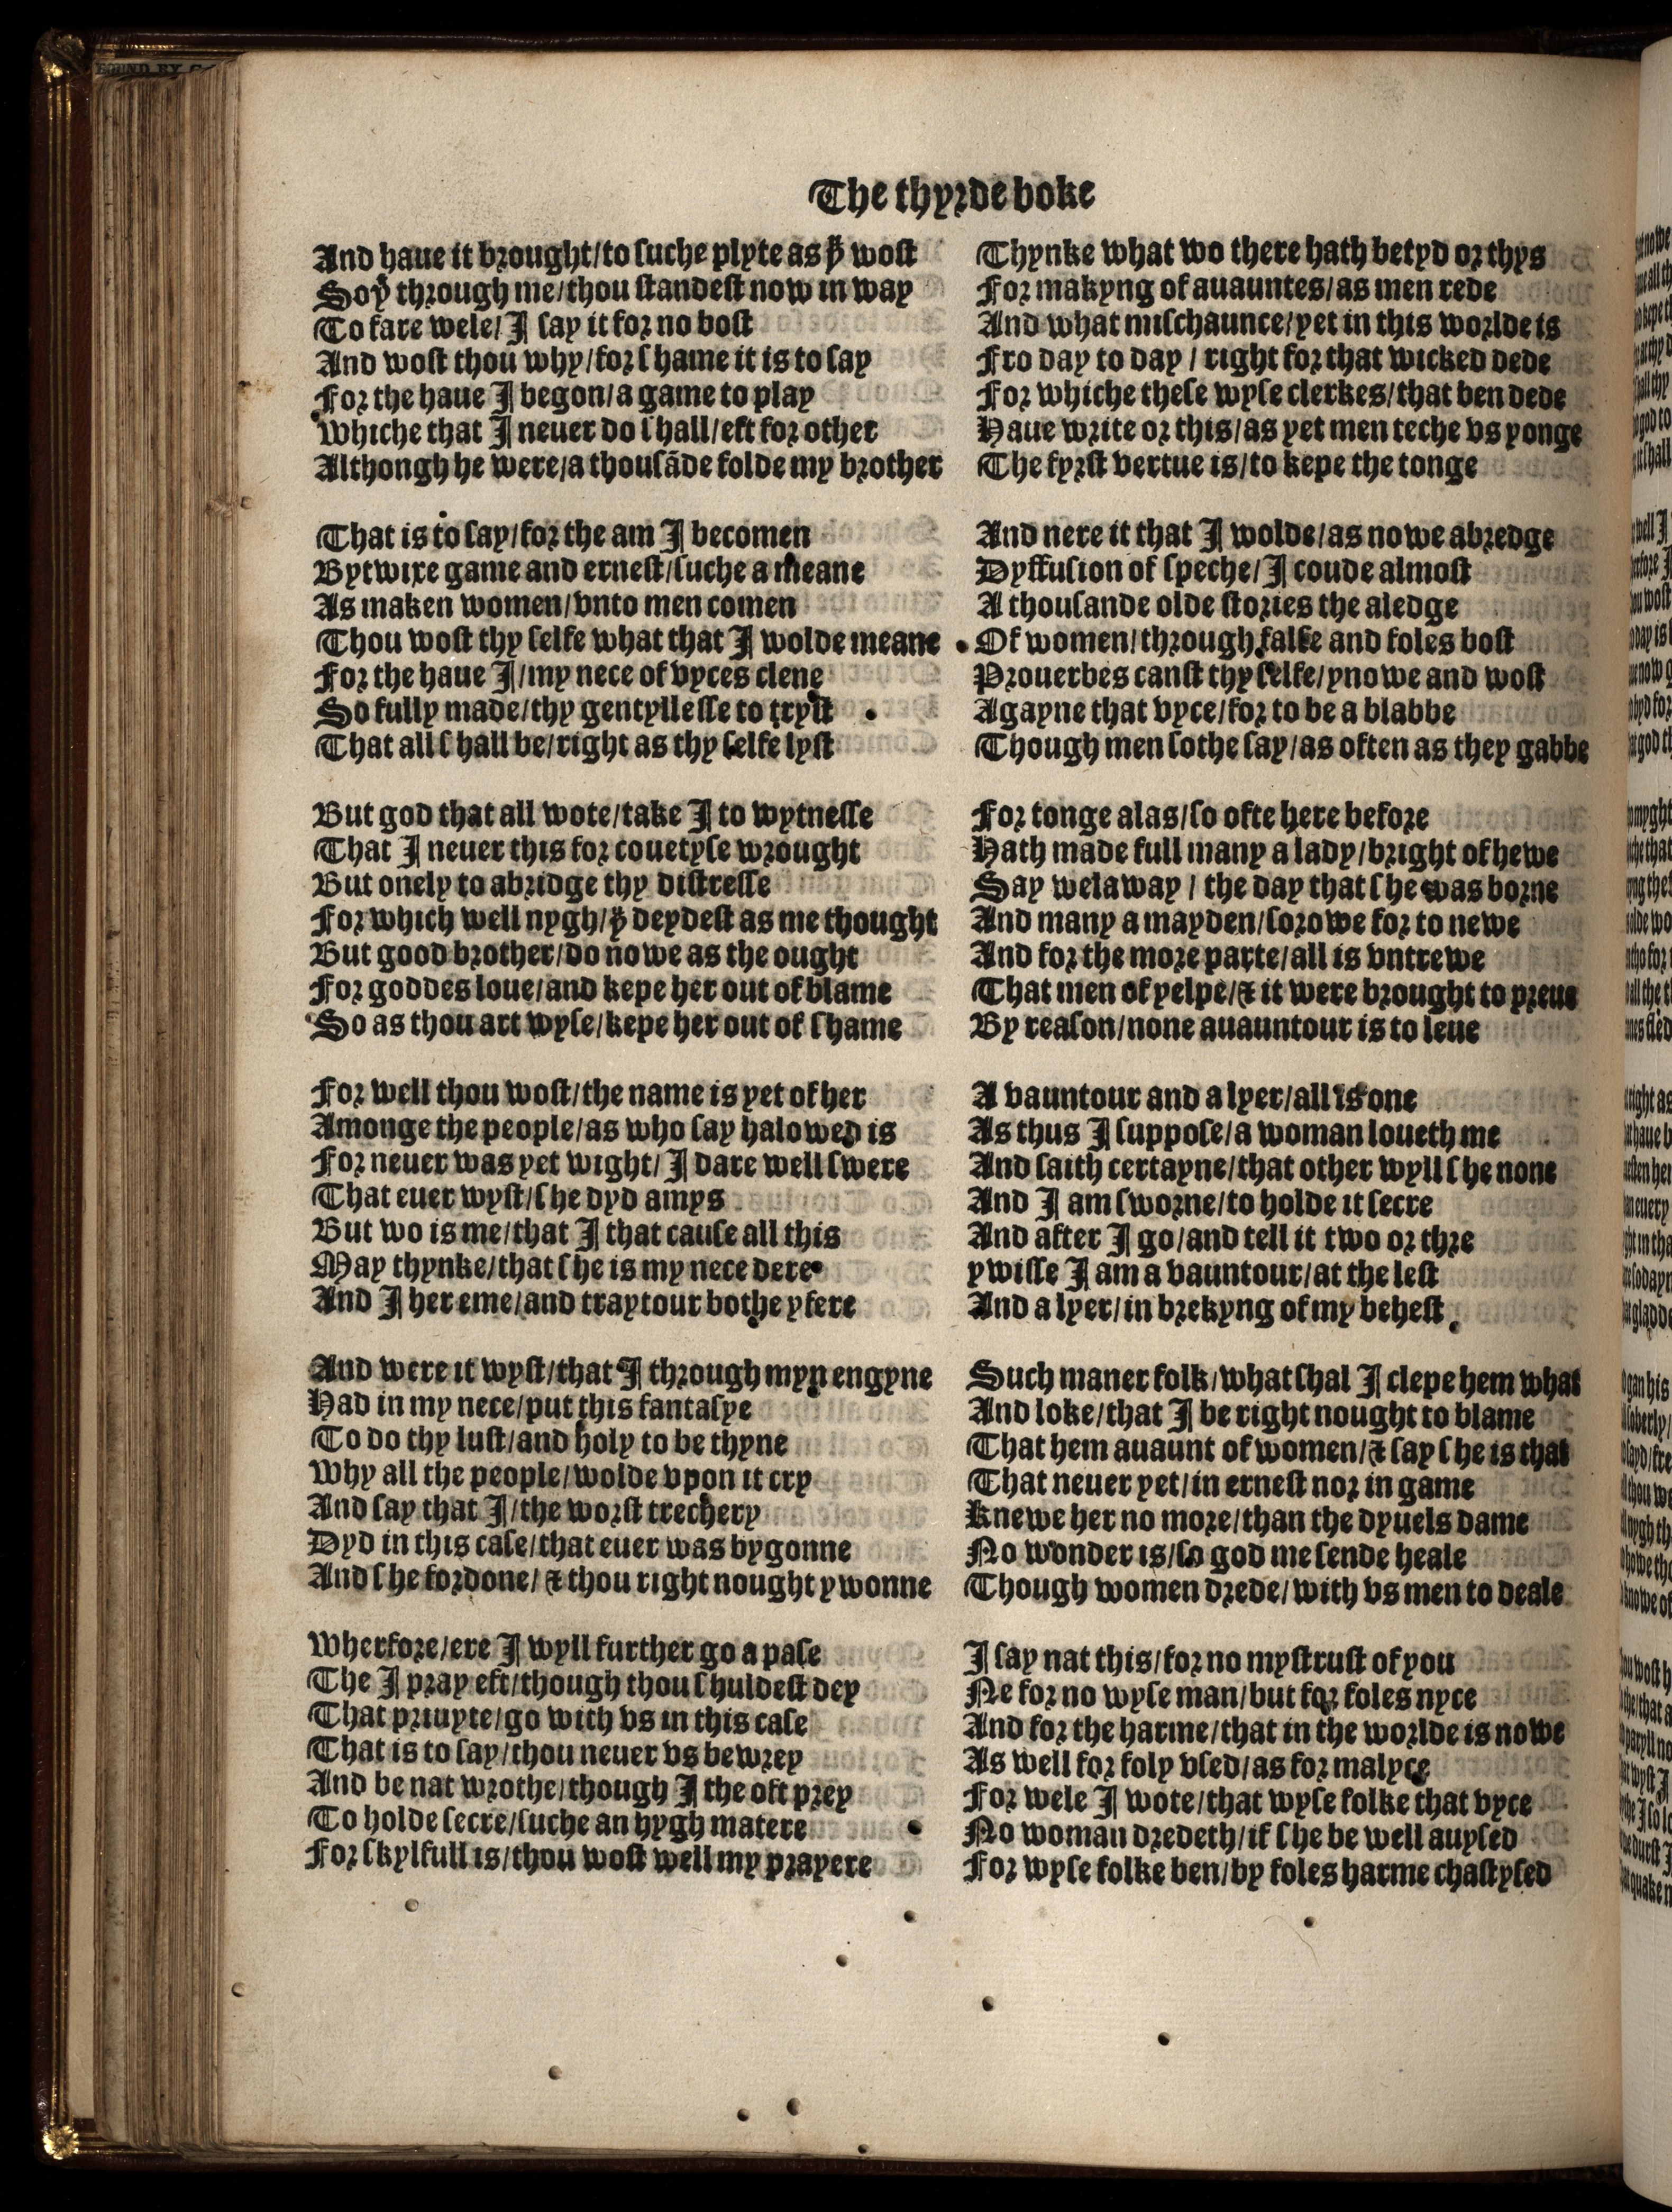 The thyrde boke
And haue it brought/to suche plyte as yͧ wost
So yͭ through me/thou standest now in way
To fare wele/I say it for no bost
And wost thou why/for shame it is to say
For the haue I begon/a game to play
Whiche that I neuer do shall/eft for other
Althongh he were/a thousāde folde my brother
That is to say/for the am I becomen
Bytwixe game and ernest/suche a meane
As maken women/vnto men comen
Thou wost thy selfe what that I wolde meane
For the haue I/my nece of vyces clene
So fully made/thy gentyllesse to tryst
That all shall be/right as thy selfe lyst
But god that all wote/take I to wytnesse
That I neuer this for couetyse wrought
But onely to abridge thy distresse
For which well nygh/yͧ deydest as me thought
But good brother/do nowe as the ought
For goddes loue/and kepe her out of blame
So as thou art wyse/kepe her out of shame
For well thou wost/the name is yet of her
Amonge the people/as who say halowed is
For neuer was yet wight/I dare well swere
That euer wyst/she dyd amys
But wo is me/that I that cause all this
May thynke/that she is my nece dere
And I her eme/and traytour bothe yfere
And were it wyst/that I through myn engyne
Had in my nece/put this fantasye
To do thy lust/and holy to be thyne
Why all the people/wolde vpon it cry
And say that I/the worst trechery
Dyd in this case/that euer was bygonne
And she fordone/⁊ thou right nought ywonne
Wherfore/ere I wyll further go a pase
The I pray eft/though thou shuldest dey
That priuyte/go with vs in this case
That is to say/thou neuer vs bewrey
And be nat wrothe/though I the oft prey
To holde secre/suche an hygh matere
For skylfull is/thou wost well my prayere
Thynke what wo there hath betyd or thys
For makyng of auauntes/as men rede
And what mischaunce/yet in this worlde is
Fro day to day / right for that wicked dede
For whiche these wyse clerkes/that ben dede
Haue write or this/as yet men teche vs yonge
The fyrst vertue is/to kepe the tonge
And nere it that I wolde/as nowe abredge
Dyffusion of speche/I coude almost
A thousande olde stories the aledge
Of women/through false and foles bost
Prouerbes canst thy selfe/ynowe and wost
Agayne that vyce/for to be a blabbe
Though men sothe say/as often as they gabbe
For tonge alas/so ofte here before
Hath made full many a lady/bright of hewe
Say welaway / the day that she was borne
And many a mayden/sorowe for to newe
And for the more parte/all is vntrewe
That men of yelpe/⁊ it were brought to preue
By reason/none auauntour is to leue
A vauntour and a lyer/all is one
As thus I suppose/a woman loueth me
And saith certayne/that other wyll she none
And I am sworne/to holde it secre
And after I go/and tell it two or thre
ywisse I am a vauntour/at the lest
And a lyer/in brekyng of my behest
Such maner folk/what shal I clepe hem what
And loke/that I be right nought to blame
That hem auaunt of women/⁊ say she is that
That neuer yet/in ernest nor in game
Knewe her no more/than the dyuels dame
No wonder is/so god me sende heale
Though women drede/with vs men to deale
I say nat this/for no mystrust of you
Ne for no wyse man/but for foles nyce
And for the harme/that in the worlde is nowe
As well for foly vsed/as for malyce
For wele I wote/that wyse folke that vyce
No woman dredeth/if she be well auysed
For wyse folke ben/by foles harme chastysed